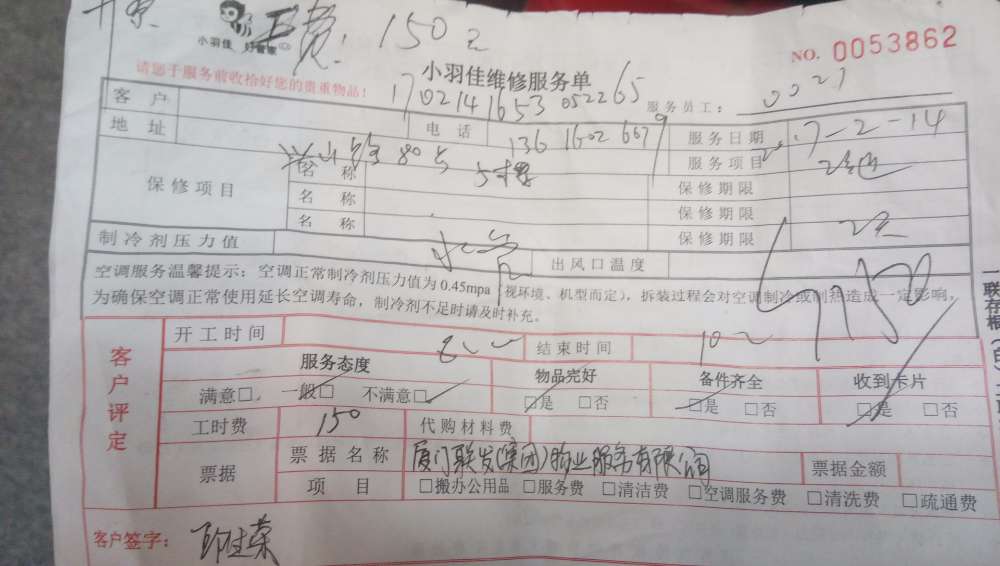 费：150元
小羽佳 好管家
NO. 0053862
小羽佳维修服务单
请您于服务前收拾好您的贵重物品！
170214165305226​5
服务员工： 0021
客 户
电 话 136 1602 6679
服务日期 7-2-14
地 址
服务项目
80号
保修项目 名 称 保修期限
名 称 保修期限
名 称 保修期限
制冷剂压力值 出风口温度
空调服务温馨提示：空调正常制冷剂压力值为0.45mpa（视环境、机型而定），拆装过程会对空调制冷或制热造成一定影响，
为确保空调正常使用延长空调寿命，制冷剂不足时请及时补充。
一联存根
客户评定
开工时间 结束时间
服务态度 物品完好 备件齐全 收到卡片
满意□ 一般□ 不满意□ □是 □否 □是 □否 □是 □否
工时费 150 代购材料费
票据 票据名称 厦门联发(集团)物业服务有限公司 票据金额
项 目 □搬办公用品 □服务费 □清洁费 □空调服务费 □清洗费 □疏通费
客户签字：